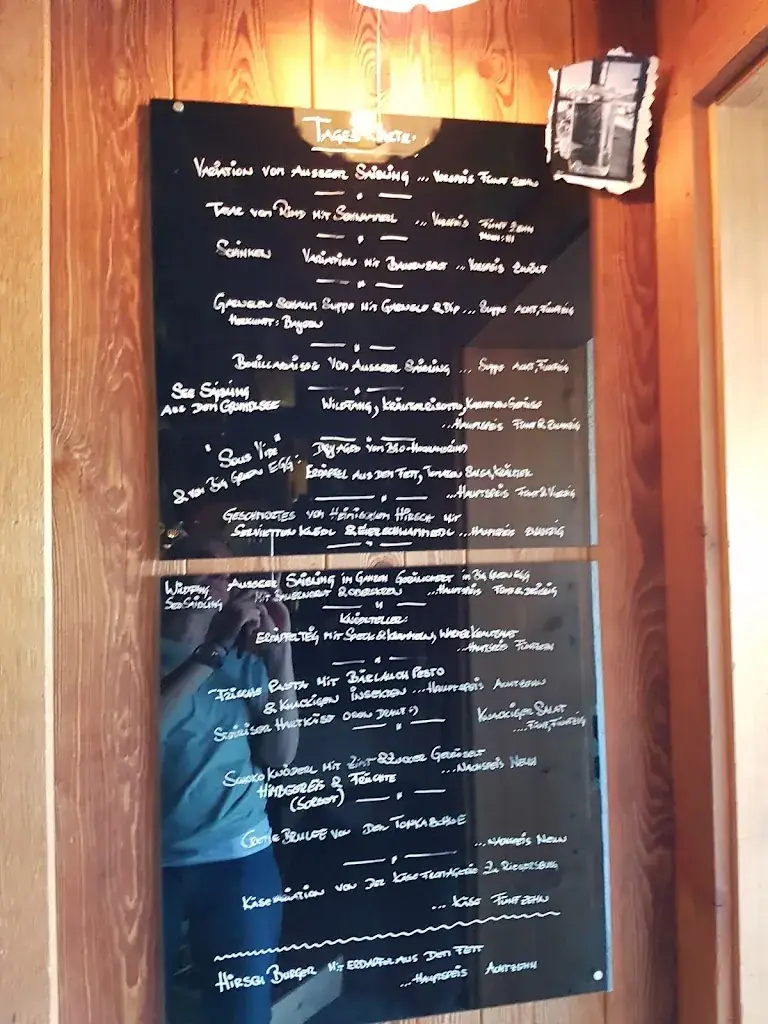 TAGESKARTE:
VARIATION VOM AUSSEER SAIBLING ... VORSPEIS FÜNFZEHN
TATAR VOM RIND MIT ... VORSPEIS FÜNFZEHN
SCHINKEN VARIATION MIT BAUERNBROT ... VORSPEIS ZWÖLF
GARNELEN SCHAUM SUPPE MIT GARNELE & DIP ... SUPPE ACHT, FÜNFZIG
HERKUNFT: BAYERN
BOUILLABAISSE VON AUSSEER SAIBLING ... SUPPE ACHT, FÜNFZIG
SEE SAIBLING
AUS DEM GRUNDLSEE WILDFANG, KRÄUTERRISOTTO, KAROTTEN GEMÜSE
... HAUPTSPEIS FÜNF & ZWANZIG
"SOUS VIDE" DRY AGED VOM BIO-
& VOM BIG GREEN EGG: ERDÄPFEL AUS DEM FETT, TOMATEN SALSA, KRÄUTER
... HAUPTSPEIS FÜNF & VIERZIG
GESCHMORTES VOM HEIMISCHEN HIRSCH MIT
SERVIETTEN KNEDL & EIERSCHWAMMERL ... HAUPTSPEIS ZWANZIG
WILDFANG AUSSEER SAIBLING IM GANZEN GERÄUCHERT IM BIG GREEN EGG
SEESAIBLING MIT BAUERNBROT & OBERSKREN ... HAUPTSPEIS
KNÖDLTELLER:
ERDÄPFELTEIG MIT SPECK & GRAMMELN, WARMER KRAUTSALAT
... HAUPTSPEIS FÜNFZEHN
FRISCHE PASTA MIT BÄRLAUCH PESTO
& KNACKIGEN INSEKTEN ... HAUPTSPEIS ACHTZEHN
STEIRISCHER HARTKÄSE OBEN DRAUF :) KNACKIGER SALAT
.... FÜNF, FÜNFZIG
SCHOKO KNÖDERL MIT ZIMT & ZUCKER GERÖSSELT
HIMBEEREIS & FRÜCHTE ... NACHSPEIS NEUN
(SORBET)
CREME BRULEE VON DER TONKABOHNE
... NACHSPEIS NEUN
KÄSEVARIATION VON DER KÄSE FROMAGERIE ZU RIEGERSBURG
... KÄSE FÜNFZEHN
HIRSCH BURGER MIT ERDÄPFEL AUS DEM FETT
... HAUPTSPEIS ACHTZEHN